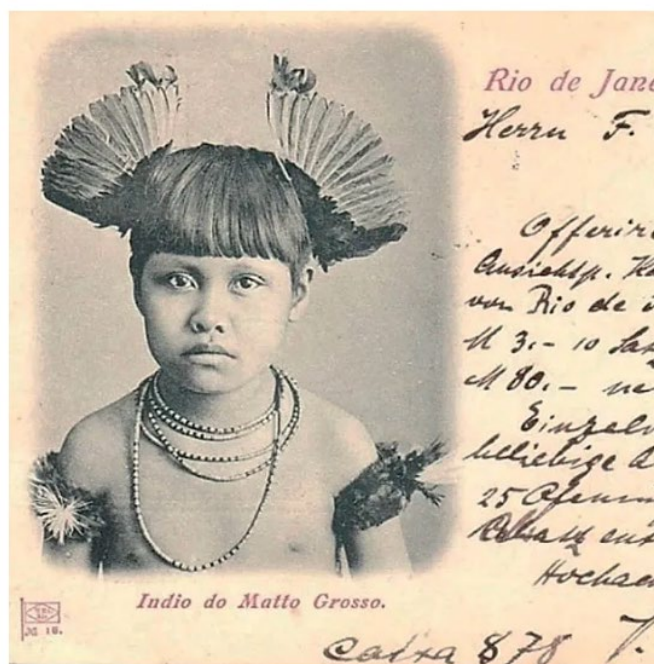 Rio de Jane
Herrn F.
Offerire
Ansichtsp. Ka
von Rio de J
M 3.- 10
M 80.- ne
Einzeln
beliebige A
25 Pfenni
Hochach
Indio do Matto Grosso.
№ 16.
Caixa 878